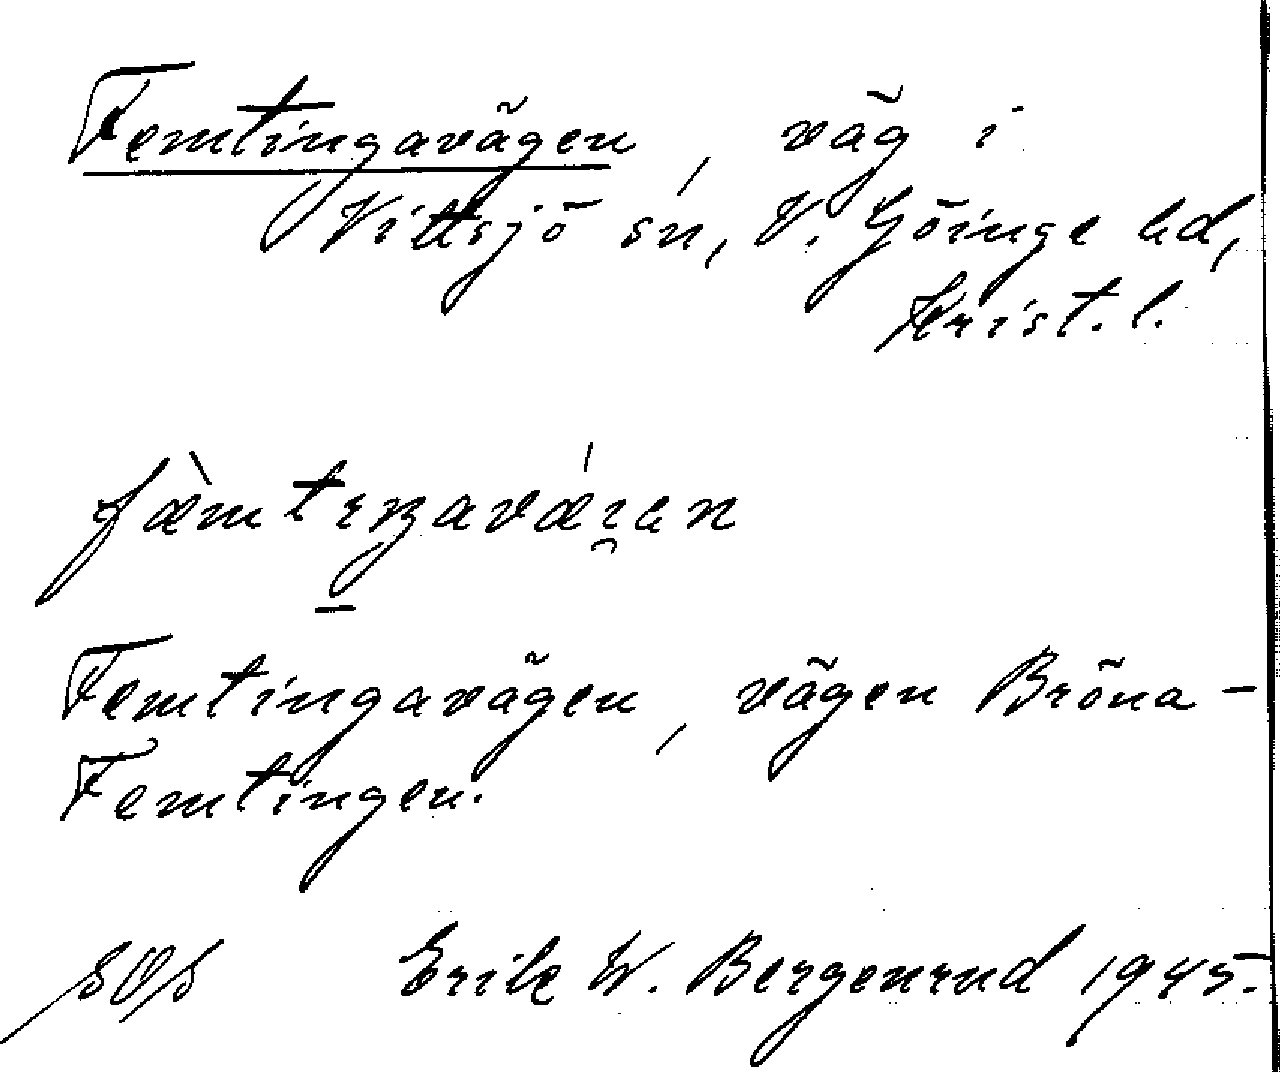 Femtingavägen, väg i
Vittsjö sn, V. Göinge hd,
Krist. l.
Femtingavägen, vägen Bröna-
Femtingen.
Erik W. Bergenrud 1945.